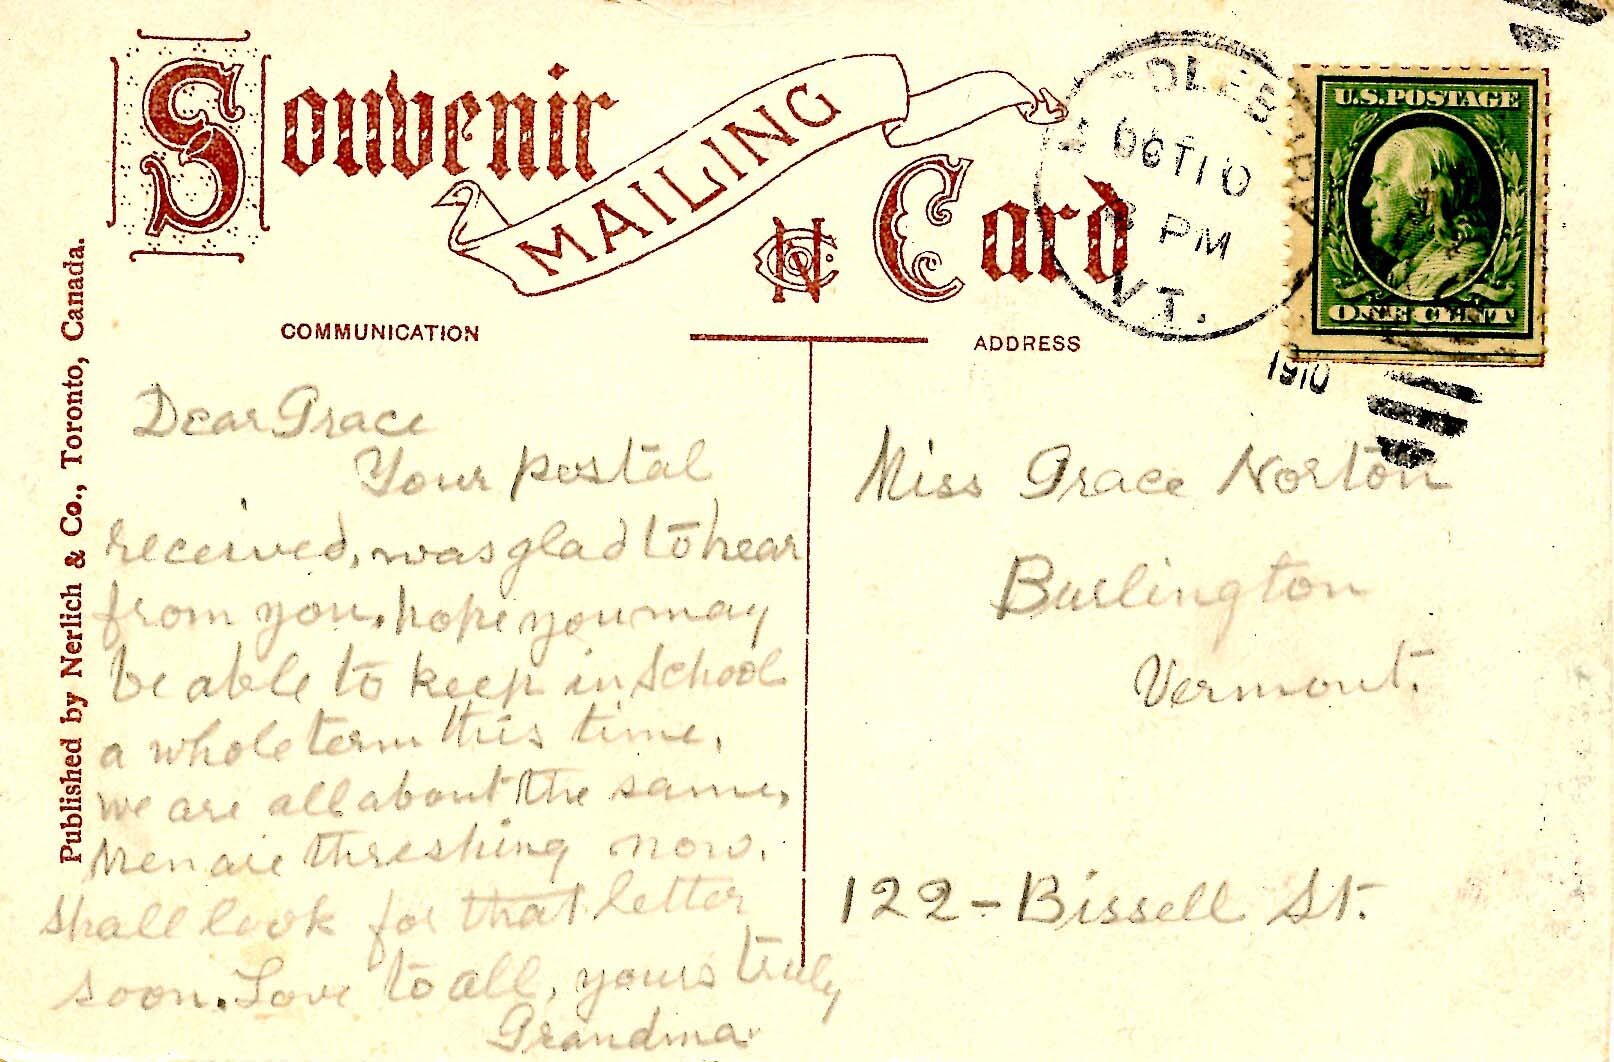 Souvenir
MAILING
Card
DLEB
OCT 10
PM
VT.
1910
U.S. POSTAGE
ONE CENT
Published by Nerlich & Co., Toronto, Canada.
COMMUNICATION
ADDRESS
Dear Grace
Your postal
received, was glad to hear
from you. hope you may
be able to keep in School
a whole term this time.
we are all about the same.
Men are threshing now.
Shall look for that letter
soon. Love to all, yours truly
Grandma
Miss Grace Norton
Burlington
Vermont.
122 - Bissell St.